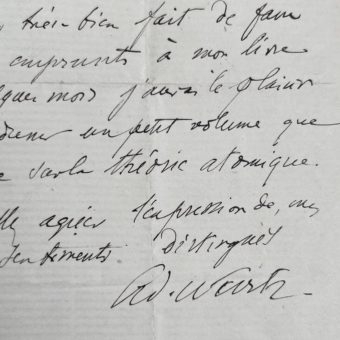 très bien fait de faire
emprunts à mon livre
ques mois j'aurai le plaisir
un petit volume que
sur la théorie atomique.
agréer l'expression de mes
sentiments distingués
Ad. Wurtz